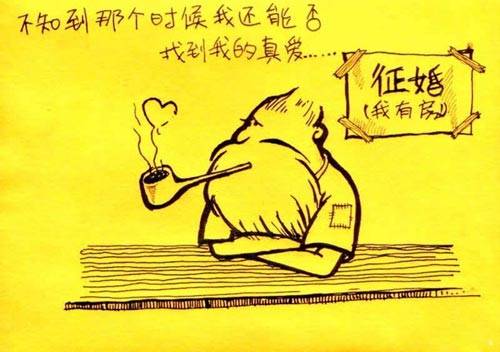 不知到那个时候我还能否
找到我的真爱......
征婚
(我有房)